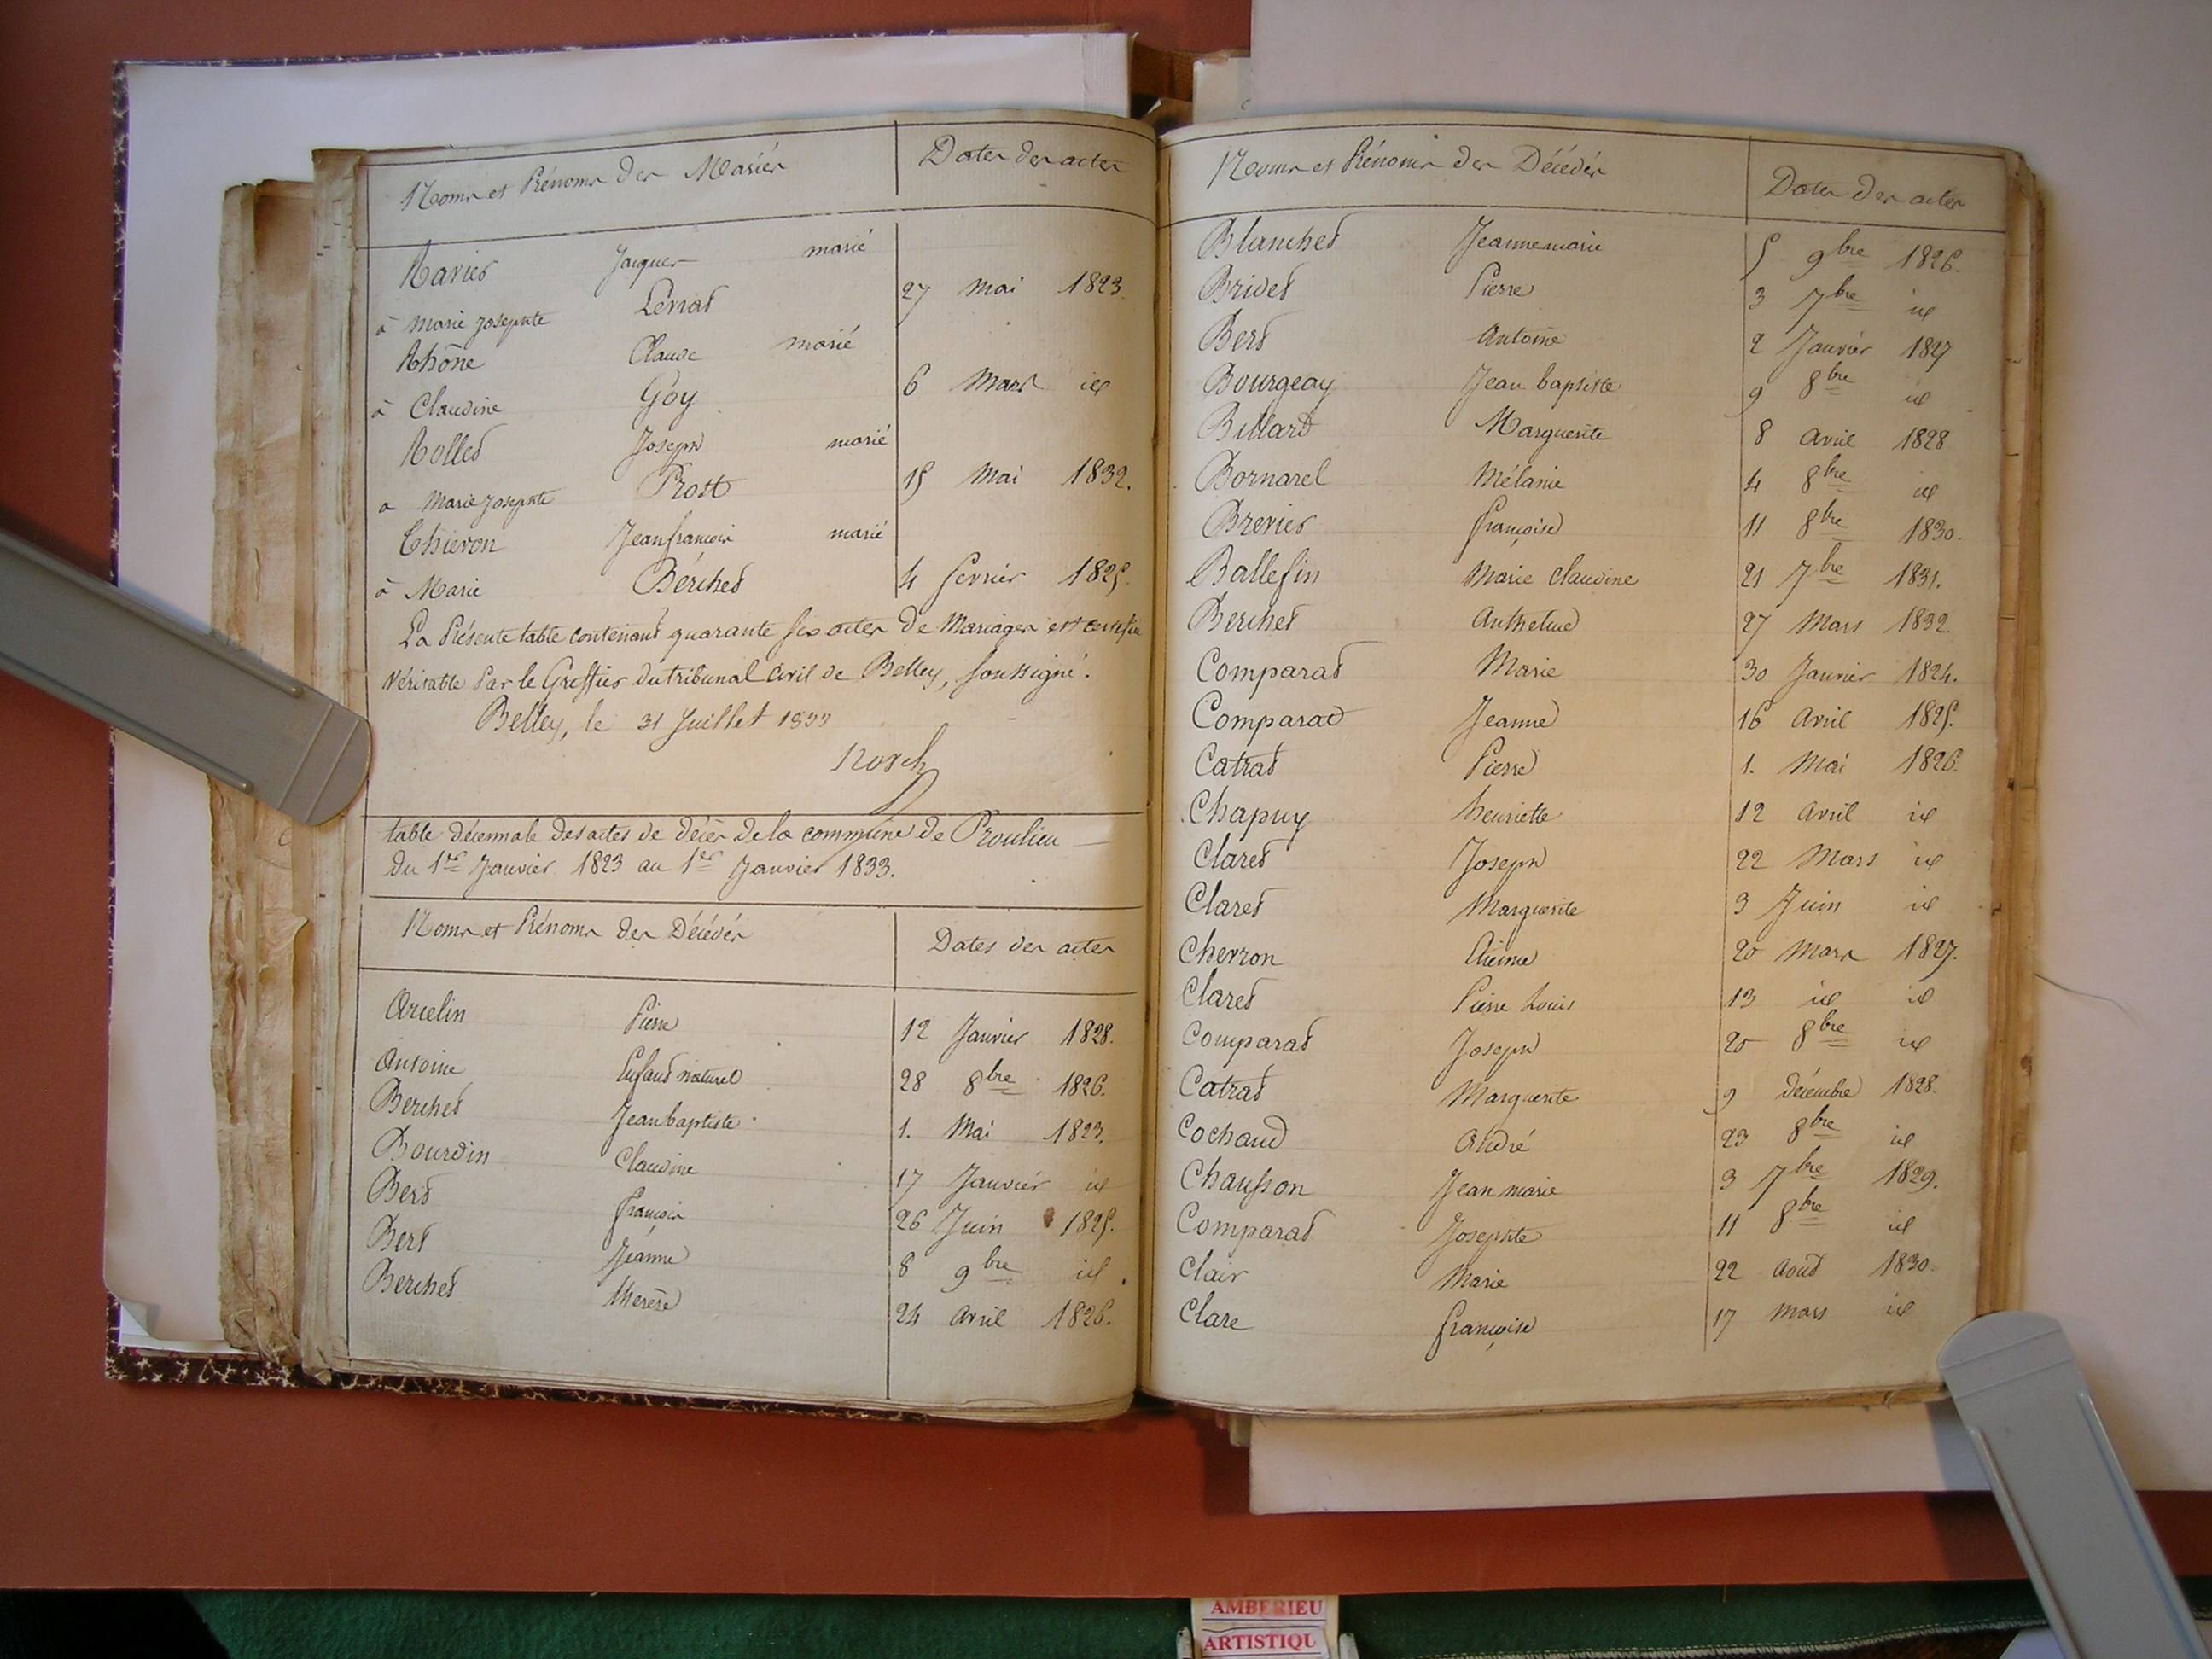 Noms et Prénoms des Mariés Dates des actes
Ravier Jacques marié
à Marie Josephte Lerrat 27 Mai 1823.
Rhône Claude marié
à Claudine Goy 6 Mars id
Rollet Joseph marié
a Marie Josephte Prost 15 Mai 1832.
Thievon Jean françois marié
à Marie Berchet 4 fevrier 1825.
La Présente table contenant quarante six actes de Mariages est certifiée
Véritable Par le Greffier du tribunal Civil de Belley, soussigné.
Belley, le 31 Juillet 1833
table décennale des actes de décès de la commune de Proulieu
du 1er Janvier 1823 au 1er Janvier 1833.
Noms et Prénoms des Décédés Dates des actes
Arcelin Pierre 12 Janvier 1828.
Antoine Enfant naturel 28 8bre 1826.
Berchet Jean baptiste 1. Mai 1823.
Bourdin Claudine 17 Janvier id
Bert françois 26 Juin 1825.
Bert Jeanne 8 9bre id.
Berchet therèse 24 Avril 1826.
Noms et Prénoms des Décédés Dates des actes
Blanchet Jeanne marie 5 9bre 1826.
Brivet Pierre 3 7bre id
Bert Antoine 2 Janvier 1827
Bourgeay Jean baptiste 9 8bre id
Billard Marguerite 8 Avril 1828
Bornarel Mélanie 4 8bre id
Brevier françoise 11 8bre 1830.
Ballefin Marie Claudine 21 7bre 1831.
Berchet Anthelme 27 Mars 1832.
Comparat Marie 30 Janvier 1824.
Comparat Jeanne 16 Avril 1825.
Catrat Pierre 1. Mai 1826.
Chapuy henriette 12 Avril id
Claret Joseph 22 Mars id
Claret Marguerite 3 Juin id
Cherron 20 Mars 1827.
Claret Pierre Louis 13 id id
Comparat Joseph 20 8bre id
Catrat Marguerite 9 décembre 1828.
Cochaud André 23 8bre id
Chausson Jean marie 3 7bre 1829.
Comparat Josephte 11 8bre id
Clair Marie 22 Aout 1830.
Clare françoise 17 Mars id
AMBERIEU
ARTISTIQU